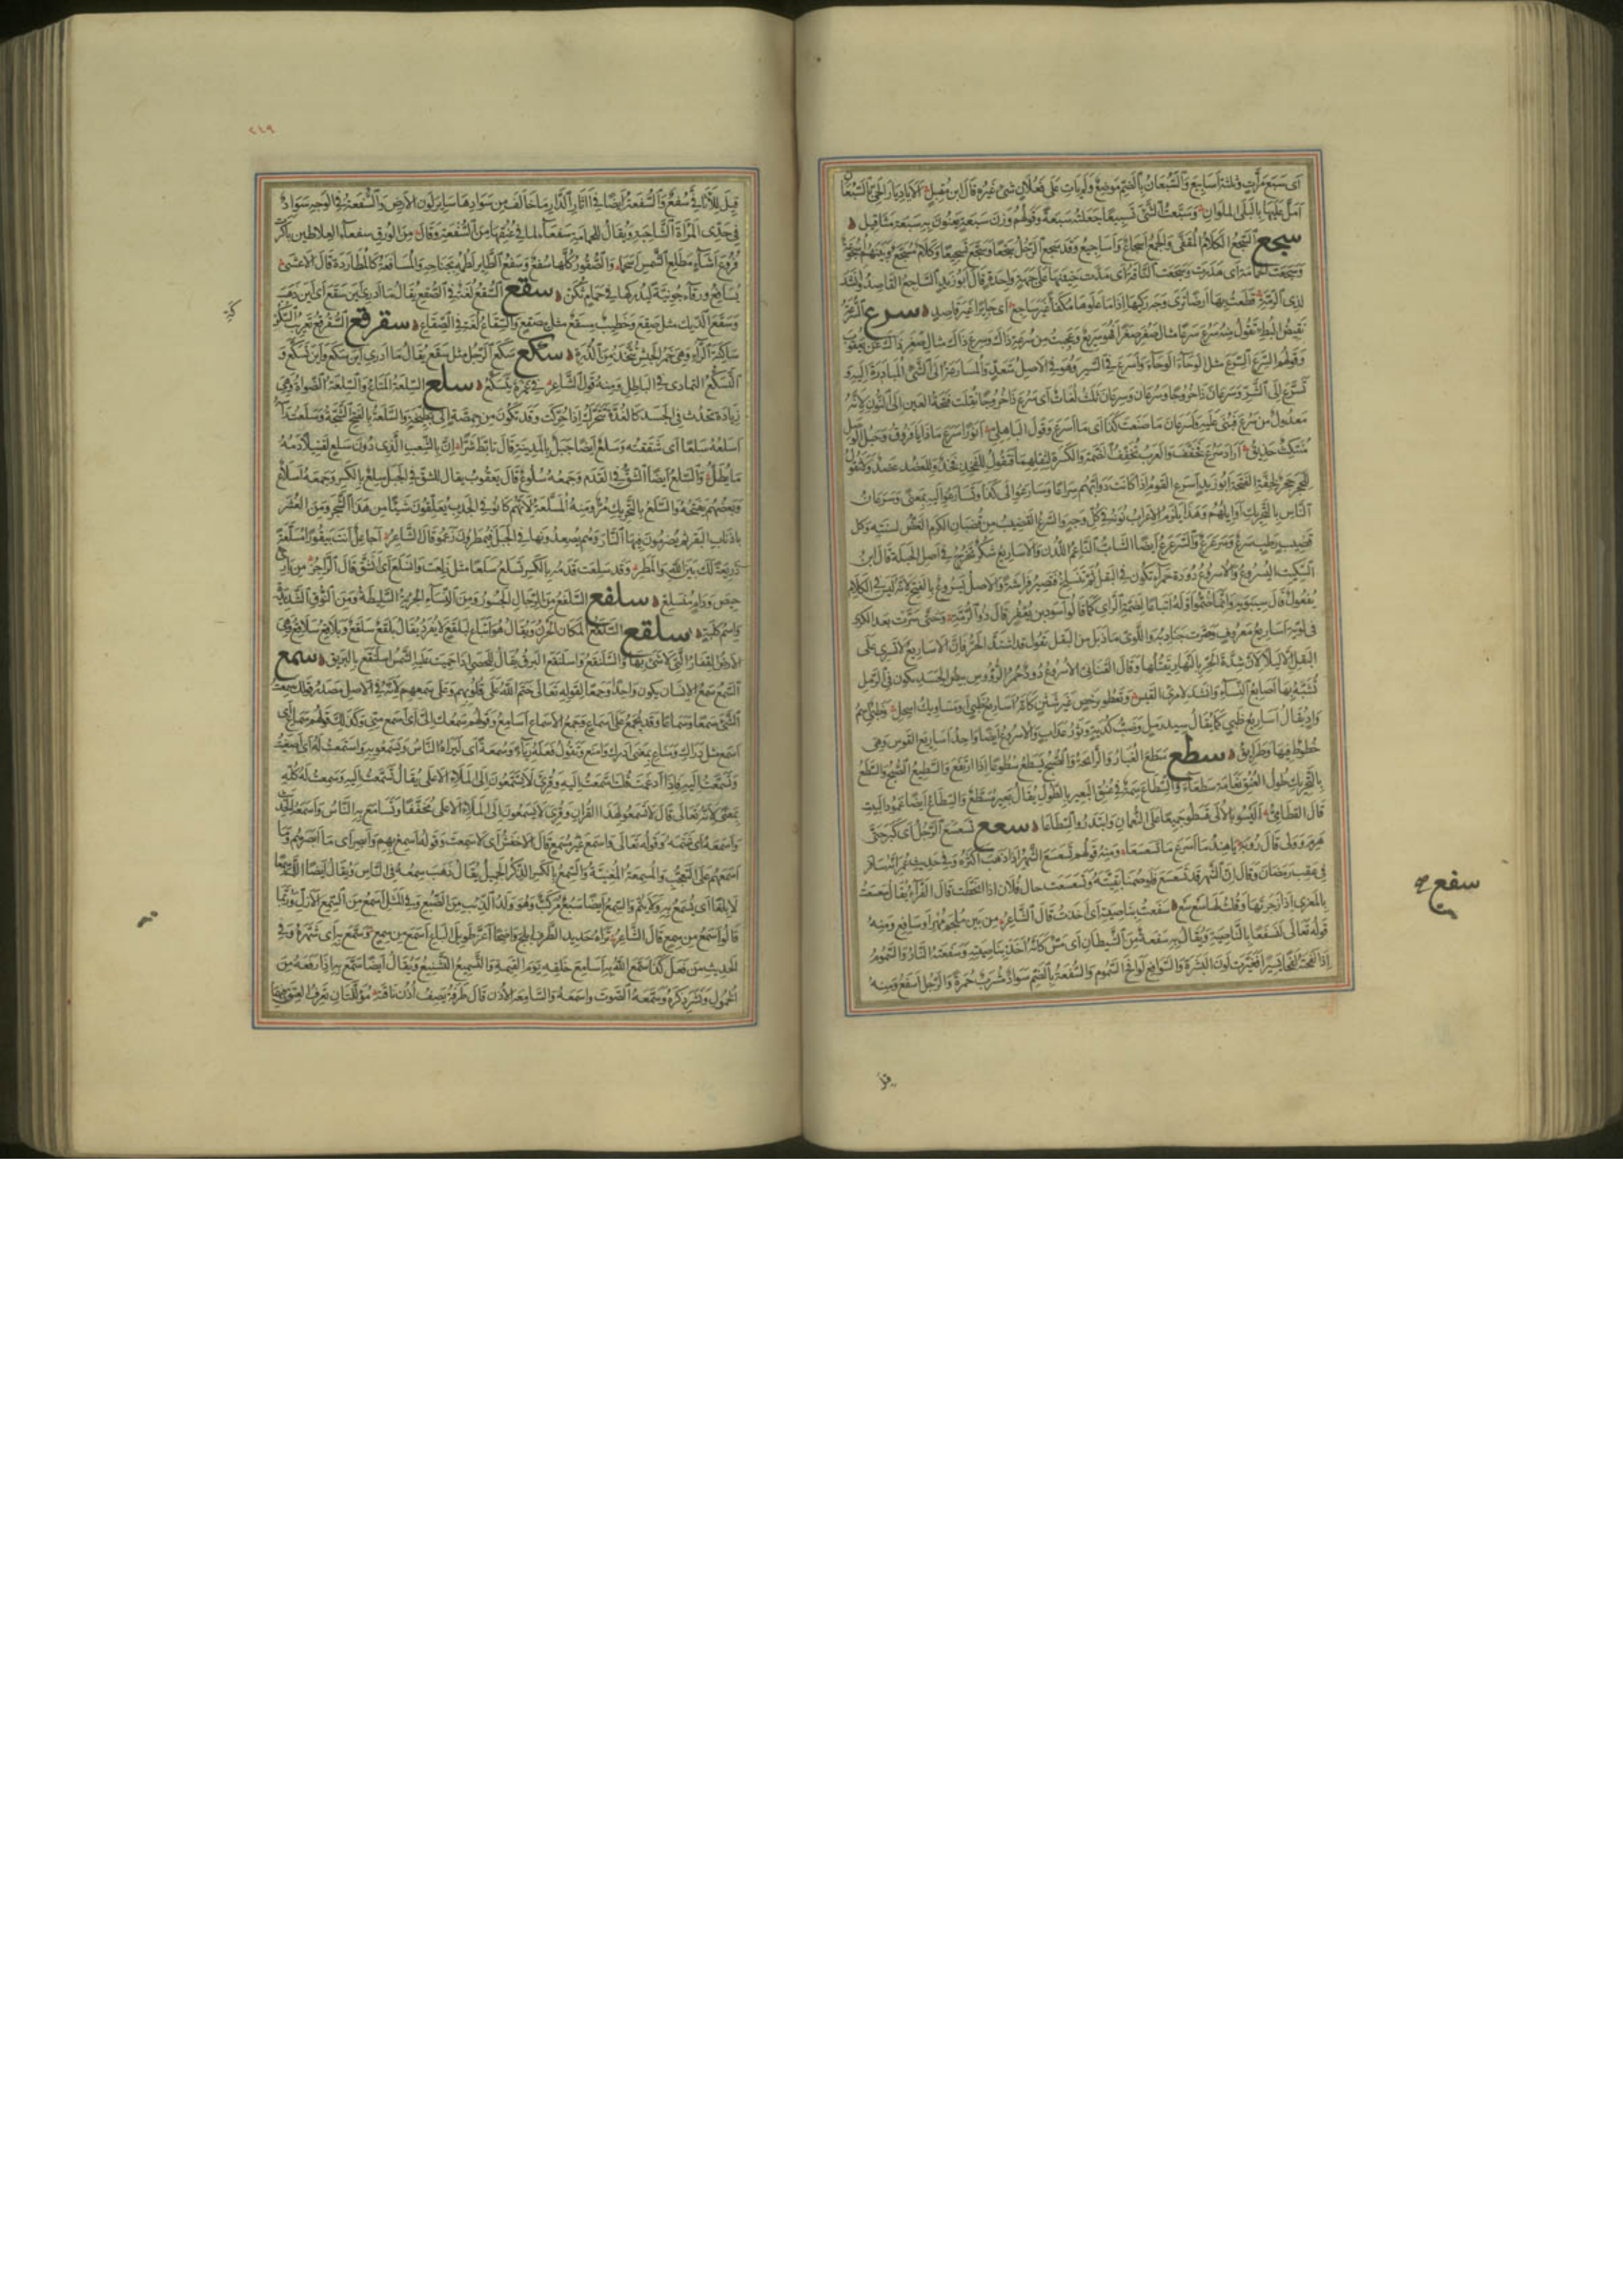 اى سبع مرات وثلثة اسابيع والسبعان بالضم موضع ولم يات على فعلان شئ غيره قال ابن مقبل الا يا ديار الحى بالسبعان
امل عليها بالبلى الملوان وسبعت الشئ تسبيعا جعلته سبعة وقولهم وزن سبعة يعنون به سبعة مثاقيل
سجع السجع الكلام المقفى والجمع اسجاع واساجيع وقد سجع الرجل سجعا وسجع تسجيعا وكلام مسجع وبينهم اسجوعة
وسجعت الحمامة اى هدرت وسجعت الناقة اى مدت حنينها على جهة واحدة قال ابو زيد الساجع القاصد وانشد
لذى الرمة قطعت بها ارضا ترى وجه ركبها اذا ما علوها مكفأ غير ساجع اى جايرا غير قاصد سرع السرعة
نقيض البطء تقول منه سرع سرعا مثال صغر صغرا فهو سريع وعجبت من سرعة ذاك وسرع ذاك مثال صغر ذاك عن يعقوب
وقولهم السرع السرع مثل الوحاء الوحاء واسرع فى السير وهو فى الاصل متعد والمسارعة الى الشئ المبادرة اليه و
تسرع الى الشر وسرعان ذا خروجا وسرعان وسرعان ثلث لغات اى سرع ذا خروجا نقلت فتحة العين الى النون لانه
معدول من سرع فبنى عليه ولسرعان ما صنعت كذا اى ما اسرع وقول الباهلى انورا سرع ماذا يا فروق وحبل الوصل
منتكث حذيق اراد سرع فخفف والعرب تخفف الضمة والكسرة لثقلهما فتقول للفخذ فخذ وللعضد عضد ولا تقول
للحجر حجر لخفة الفتحة ابو زيد اسرع القوم اذا كانت دوابهم سراعا وسارعوا الى كذا وتسارعوا اليه بمعنى وسرعان
الناس بالتحريك اوايلهم وهذا يلزم الاعراب نونه فى كل وجه والسرع القضيب من قضبان الكرم الغض لسنته وكل
قضيب رطب سرع وسرعرع والسرعرع ايضا الشاب الناعم اللدن والاساريع شكر تخرج فى اصل الحبلة قال ابن
السكيت اليسروع والاسروع دودة حمراء تكون فى البقل ثم تنسلخ فتصير فراشة والاصل يسروع بالفتح لانه ليس فى الكلام
يفعول قال سيبويه وانما ضموا اوله اتباعا لضمة الراى كما قالوا اسود بن يعفر قال ذو الرمة وحتى سرت بعد الكرى
فى لويه اساريع معروف وصرت جنادبه واللوى ما ذبل من البقل تقول قد اشتد الحر فان الاساريع لا تسرى على
البقل الا ليلا لان شدة الحر بالنهار يقتلها وقال القنانى الاسروع دود حمر الرؤوس بيض الجسد يكون فى الرمل
تشبه بها اصابع النساء وانشد لامرئ القيس وتعطو برخص غير شثن كانه اساريع ظبى او مساويك اسحل وظبى اسم
واد يقال اساريع ظبى كما يقال سيد رمل وضب كدية وثور عداب والاسروع ايضا واحد اساريع القوس وهى
خطوط فيها وطرايق سطع سطع الغبار والرائحة والصبح يسطع سطوعا اذا ارتفع والسطيع الصبح والسطع
بالتحريك طول العنق نعامة سطعاء والسطاع سمة فى عنق البعير بالطول يقال بعير مسطع والسطاع ايضا عمود البيت
قال القطامى اليسوا بالالى قسطوا جميعا على النعمان وابتدروا السطاعا سعع تسعسع الرجل اى كبر حتى
هرم وولى قال رؤبة يا هند ما اسرع ما تسعسعا ومنه قولهم تسعسع الشهر اذا ذهب اكثره وفى حديث عمر انه سافر
فى عقب رمضان وقال ان الشهر قد تسعسع فلو صمنا بقيته وتسعسعت حال فلان اذا انحطت قال الفراء يقال سعسعت
بالمعزى اذا زجرتها وقلت لها سع سع سفعت بناصيته اى اخذت قال الشاعر من بين ملجم مهره او سافع ومنه
قوله تعالى لنسفعا بالناصية ويقال به سفعة من الشيطان اى مس كانه اخذ بناصيته وسفعته النار والسموم
اذا لفحته لفحا يسيرا فغيرت لون البشرة والسوافع لوافح السموم والسفعة بالضم سواد مشرب حمرة والرجل اسفع ومنه
سفع صح
قيل
٢٤٩
قيل للاثافى سفع والسفعة ايضا فى آثار الدار ما خالف من سوادها ساير لون الارض والسفعة فى الوجه سواد
فى خدى المرأة الشاحبة ويقال للحمامة سفعاء لما فى عنقها من السفعة وقال من الورق سفعاء العلاطين باكرت
فروع اشاء مطلع الشمس اسحما والصقور كلها سفع وسفع الطاير لطمه بجناحيه والمسافعة كالمطاردة قال الاعشى
يسافع ورقاء جونية ليدركها فى حمام ثكن سقع السقع لغة فى الصقع يقال ما ادرى اين سقع اى اين ذهب
وسقع الديك مثل صقع وخطيب مسقع مثل مصقع والسقاع لغة فى الصقاع سقرقع السقرقع تعريب السكركة
ساكنة الراء وهى خمر الحبش تتخذ من الذرة سكع سكع الرجل مثل سقع يقال ما ادرى اين سكع واين تسكع و
التسكع التمادى فى الباطل ومنه قول الشاعر فى غمرة يتسكع سلع السلعة المتاع والسلعة الضواة وهى
زيادة تحدث فى الجسد كالغدة تتحرك اذا حركت وقد تكون من حمصة الى بطيخة والسلعة بالفتح الشجة وسلعت راسه
اسلعه سلعا اى شققته وسلع ايضا جبل بالمدينة قال تابط شرا ان بالشعب الذى دون سلع لقتيلا دمه
ما يطل والسلع ايضا الشق فى القدم وجمعه سلوع قال يعقوب يقال للشق فى الجبل سلع بالكسر وجمعه اسلاع
وبعضهم يفتحه والسلع بالتحريك شجر مر ومنه المسلعة لانهم كانوا فى الجدب يعلقون شيئا من هذا الشجر ومن العشر
باذناب البقر ثم يضرمون فيها النار وهم يصعدونها فى الجبل فيمطرون زعموا قال الشاعر اجاعل انت بيقورا مسلعة
ذريعة لك بين الله والمطر وقد سلعت قدمه بالكسر تسلع سلعا مثل زلعت وانسلع اى انشق قال الراجز من بارئ
حيص ودام منسلع سلفع السلفع من الرجال الجسور ومن النساء الجريئة السليطة ومن النوق الشديدة
واسم كلبة سلقع السلقع المكان الحزن ويقال هو اتباع لبلقع لا يفرد يقال بلقع سلقع وبلاقع سلاقع وهى
الارض القفار التى لا شئ بها والسلنقع واسلنقع البرق يقال للحصى اذا حميت عليه الشمس اسلنقع بالبريق سمع
السمع سمع الانسان يكون واحدا وجمعا لقوله تعالى ختم الله على قلوبهم وعلى سمعهم لانه فى الاصل مصدر قولك سمعت
الشئ سمعا وسماعا وقد يجمع على اسماع وجمع الاسماع اسامع وقولهم سمعك الى اى اسمع منى وكذلك قولهم سماع اى
اسمع مثل دراك ومناع بمعنى ادرك وامنع وتقول فعله رياء وسمعة اى ليراه الناس وليسمعوا به واستمعت له اى اصغيت
وتسمعت اليه فاذا ادغمت قلت اسمعت اليه وقرئ لا يسمعون الى الملاء الاعلى يقال تسمعت اليه وسمعت له كله
بمعنى لانه تعالى قال لا تسمعوا لهذا القران وقرئ لا يسمعون الى الملاء الاعلى مخففا وتسامع به الناس واسمعه الحديث
وسمعه اى شتمه وقوله تعالى واسمع غير مسمع قال الاخفش اى لا سمعت وقوله اسمع بهم وابصر اى ما ابصرهم وما
اسمعهم على التعجب والمسمعة المغنية والسمع بالكسر الذكر الجميل يقال ذهب سمعه فى الناس ويقال ايضا اللهم سمعا
لا بلغا اى نسمع به ولا يتم والسمع ايضا سبع مركب وهو ولد الذئب من الضبع وفى المثل اسمع من السمع الازل وربما
قالوا اسمع من سمع قال الشاعر تراه حديد الطرف ابلج واضحا اغر طويل الباع اسمع من سمع وسمع به اى شهره وفى
الحديث من فعل كذا سمع الله به اسامع خلقه يوم القيمة والتسميع التشنيع ويقال ايضا سمع به اذا رفعه من
الخمول ونشر ذكره وسمعه الصوت واسمعه والسامعة الاذن قال طرفة يصف اذن ناقته مؤللتان تعرف العتق فيهما